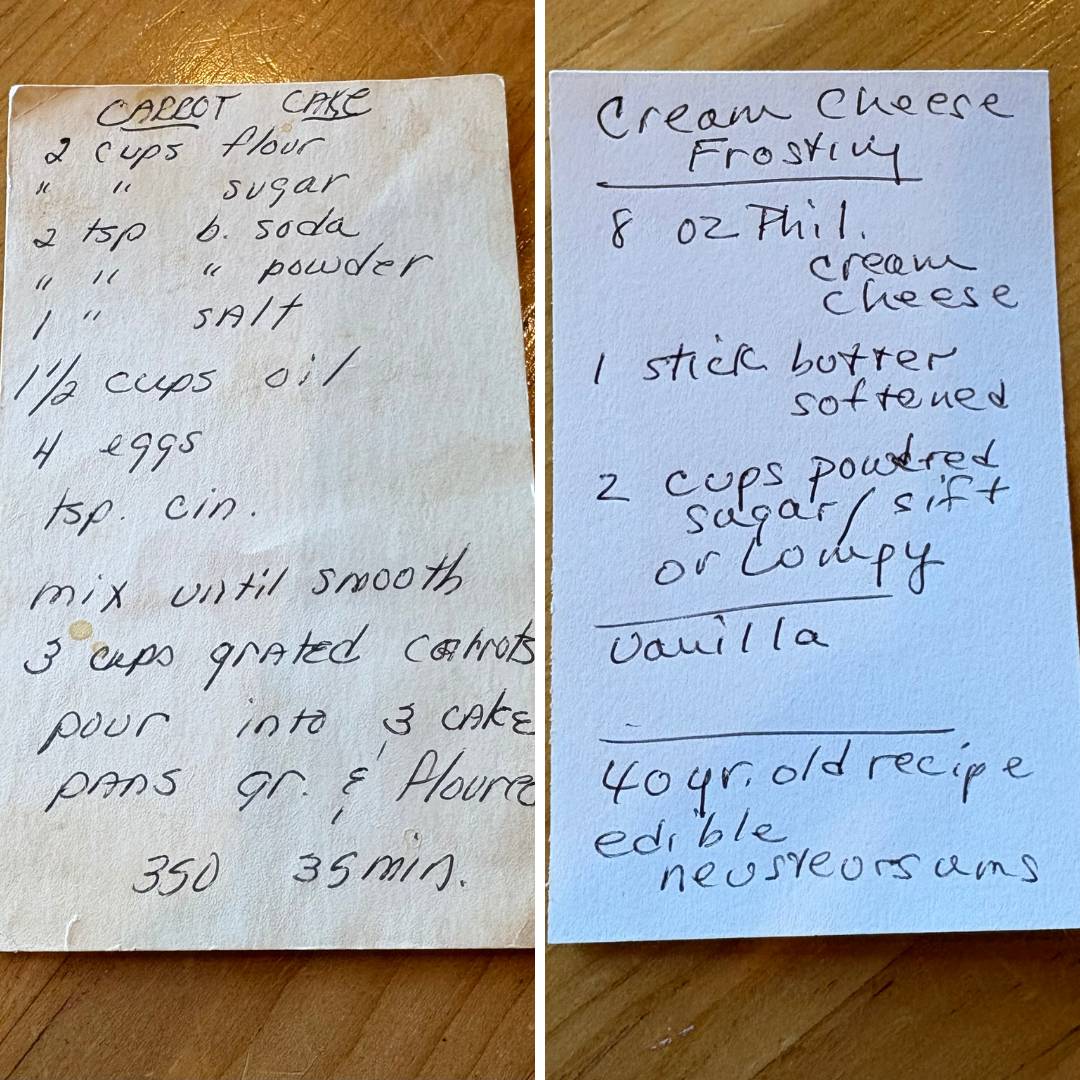 CARROT CAKE
2 cups flour
" " sugar
2 tsp b. soda
" " " powder
1 " SAlt
1 1/2 cups oil
4 eggs
tsp. cin.
mix until smooth
3 cups grated carrots
pour into 3 CAKE
pANs gr. & floured
350 35 min.
Cream Cheese
Frosting
8 oz Phil.
cream
cheese
1 stick butter
softened
2 cups powdred
sugar / sift
or Lumpy
Vanilla
40 yr. old recipe
edible